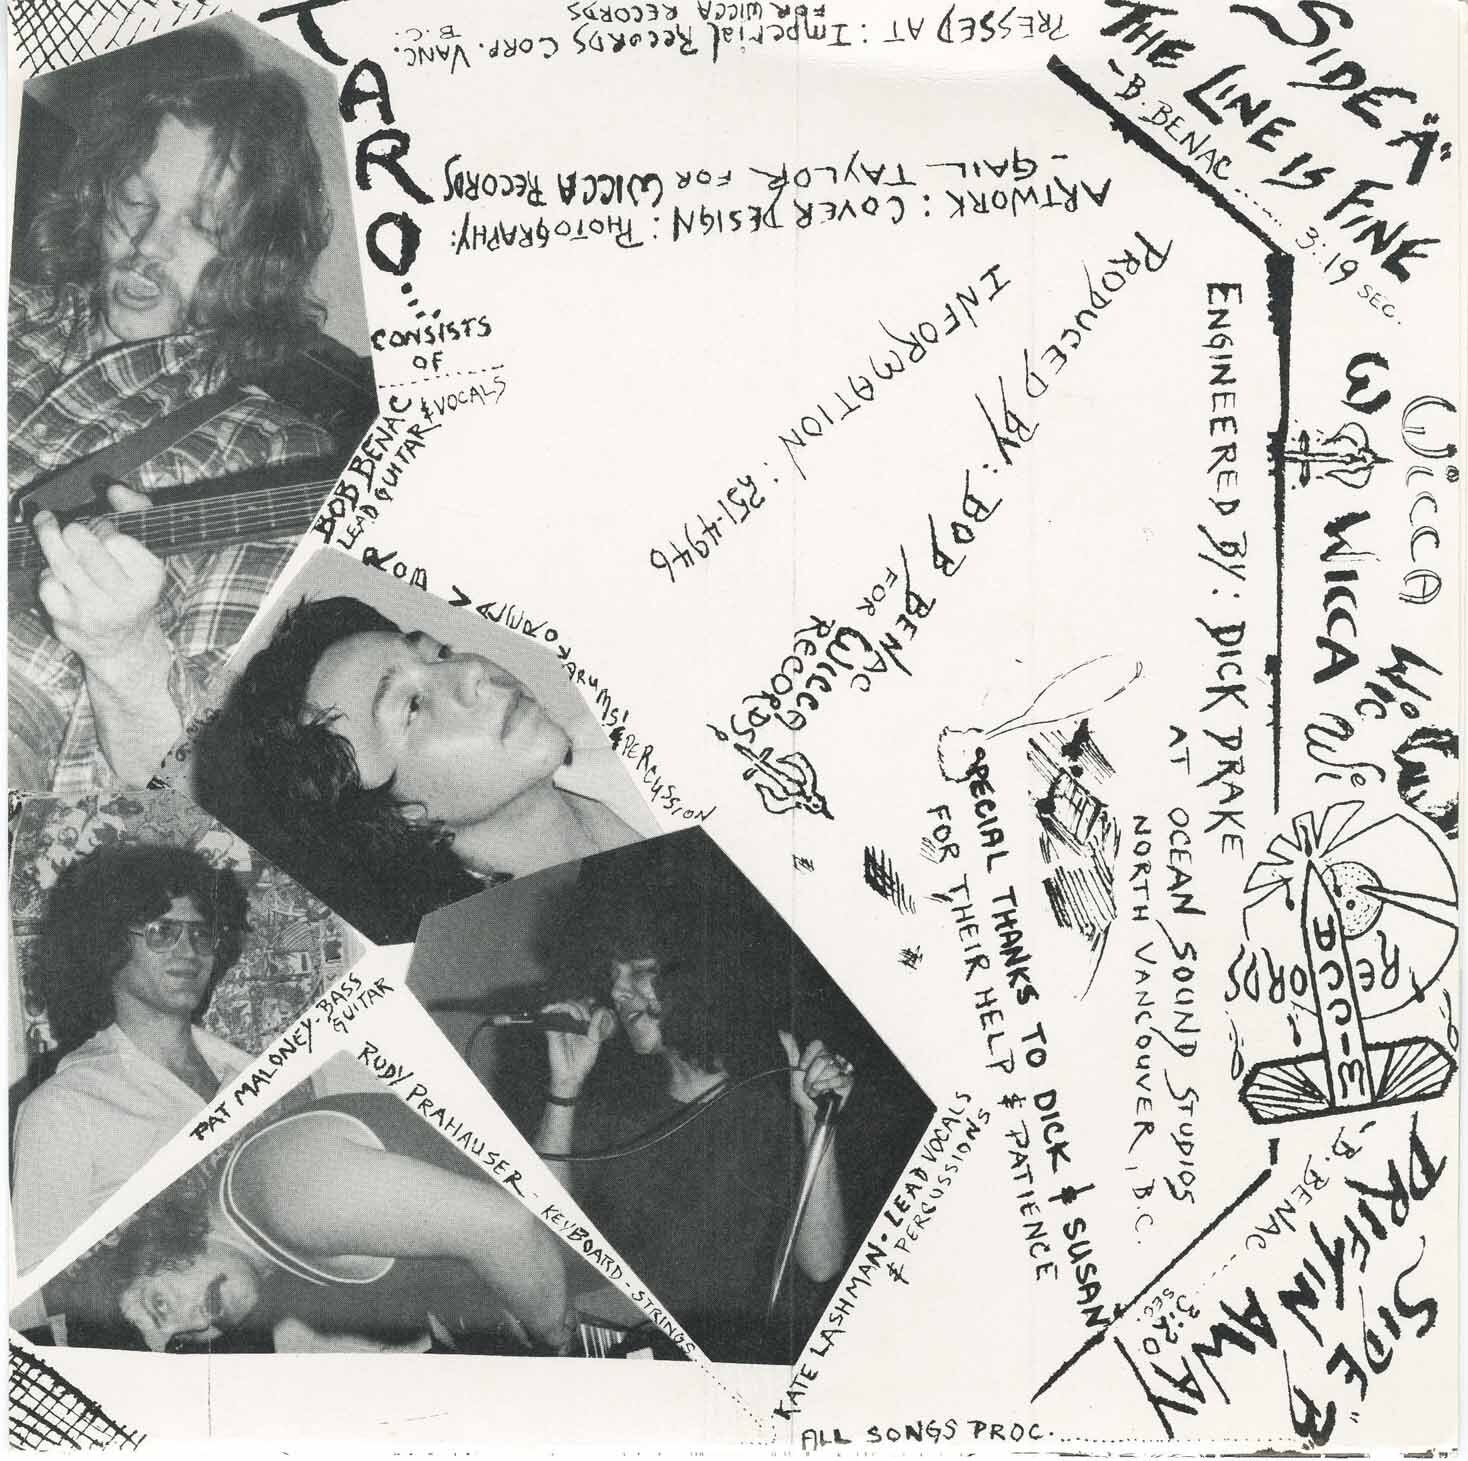 TARO...
CONSISTS
OF
BOB BENAC
LEAD GUITAR & VOCALS
DRUMS & PERCUSSION
PAT MALONEY - BASS
GUITAR
RUDY PRAHAUSER - KEYBOARD - STRINGS
KATE LASHMAN • LEAD VOCALS
& PERCUSSIONS
ALL SONGS PROC.
PRESSED AT : Imperial Records Corp. VANC.
B.C.
FOR WICCA RECORDS
ARTWORK : COVER DESIGN : PHOTOGRAPHY :
- GAIL TAYLOR FOR WICCA RECORDS
INFORMATION : 251-4946
PRODUCED BY : BOB BENAC
FOR WICCA
RECORDS
SPECIAL THANKS TO DICK & SUSAN
FOR THEIR HELP & PATIENCE
ENGINEERED BY : DICK DRAKE
AT OCEAN SOUND STUDIOS
NORTH VANCOUVER, B.C.
SIDE "A"
THE LINE IS FINE
- B. BENAC ...... 3:19 SEC.
WICCA
W WICCA Wi
SIDE "B"
DRIFTIN AWAY
B. BENAC ...... 3:20
SEC.